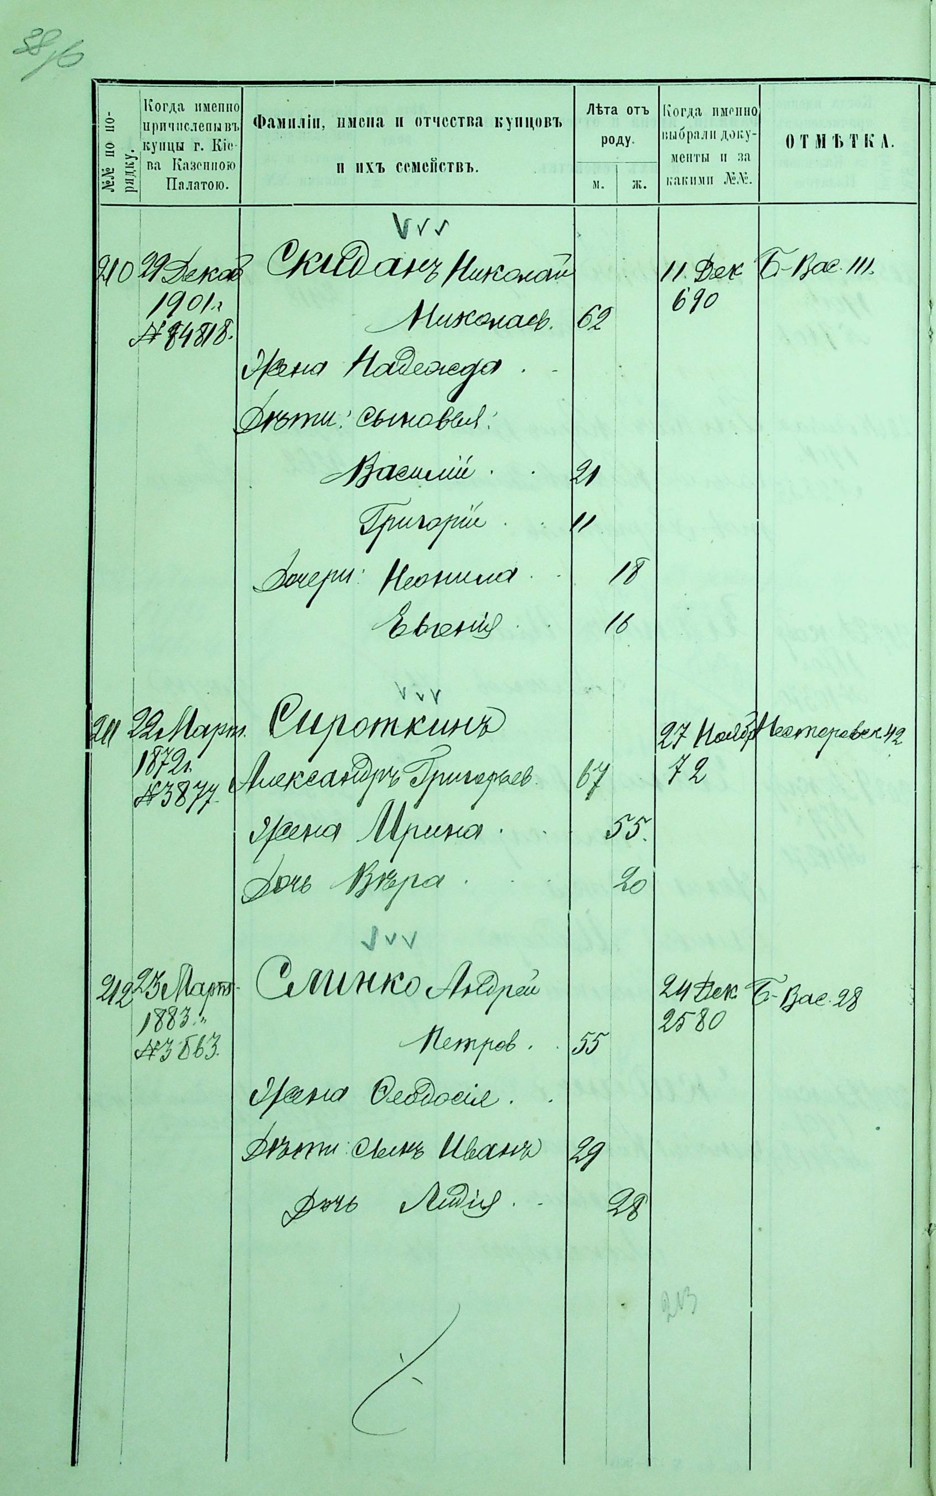 38/б
№№ по порядку.
Когда именно
причислены въ
купцы г. Кіева
Казенною
Палатою.
Фамиліи, имена и отчества купцовъ
и ихъ семействъ.
Лѣта отъ
роду.
м. ж.
Когда именно
выбрали доку-
менты и за
какими №№.
ОТМѢТКА.
210 29 Декаб Скиданъ Николай 11 Дек Б-Вас. 111.
1901г. Николаев. 62 690
№ 84818.
Жена Надежда
Дѣти: сыновья:
Василій 21
Григорій 11
Дочери: Неонила 18
Евгенія 16
211 22 Март. Сироткинъ 27 Нояб Нестеровск 42
1872г. Александръ Григорьев 67 72
№3877.
Жена Ирина 55.
Дочь Вѣра 20
212 23 Март. Слинко Андрей 24 Дек Б-Вас. 28
1883 Петров. 55 2580
№3563.
Жена Ѳеодосія
Дѣти: сынъ Иванъ 29
Дочь Лидія 28
213